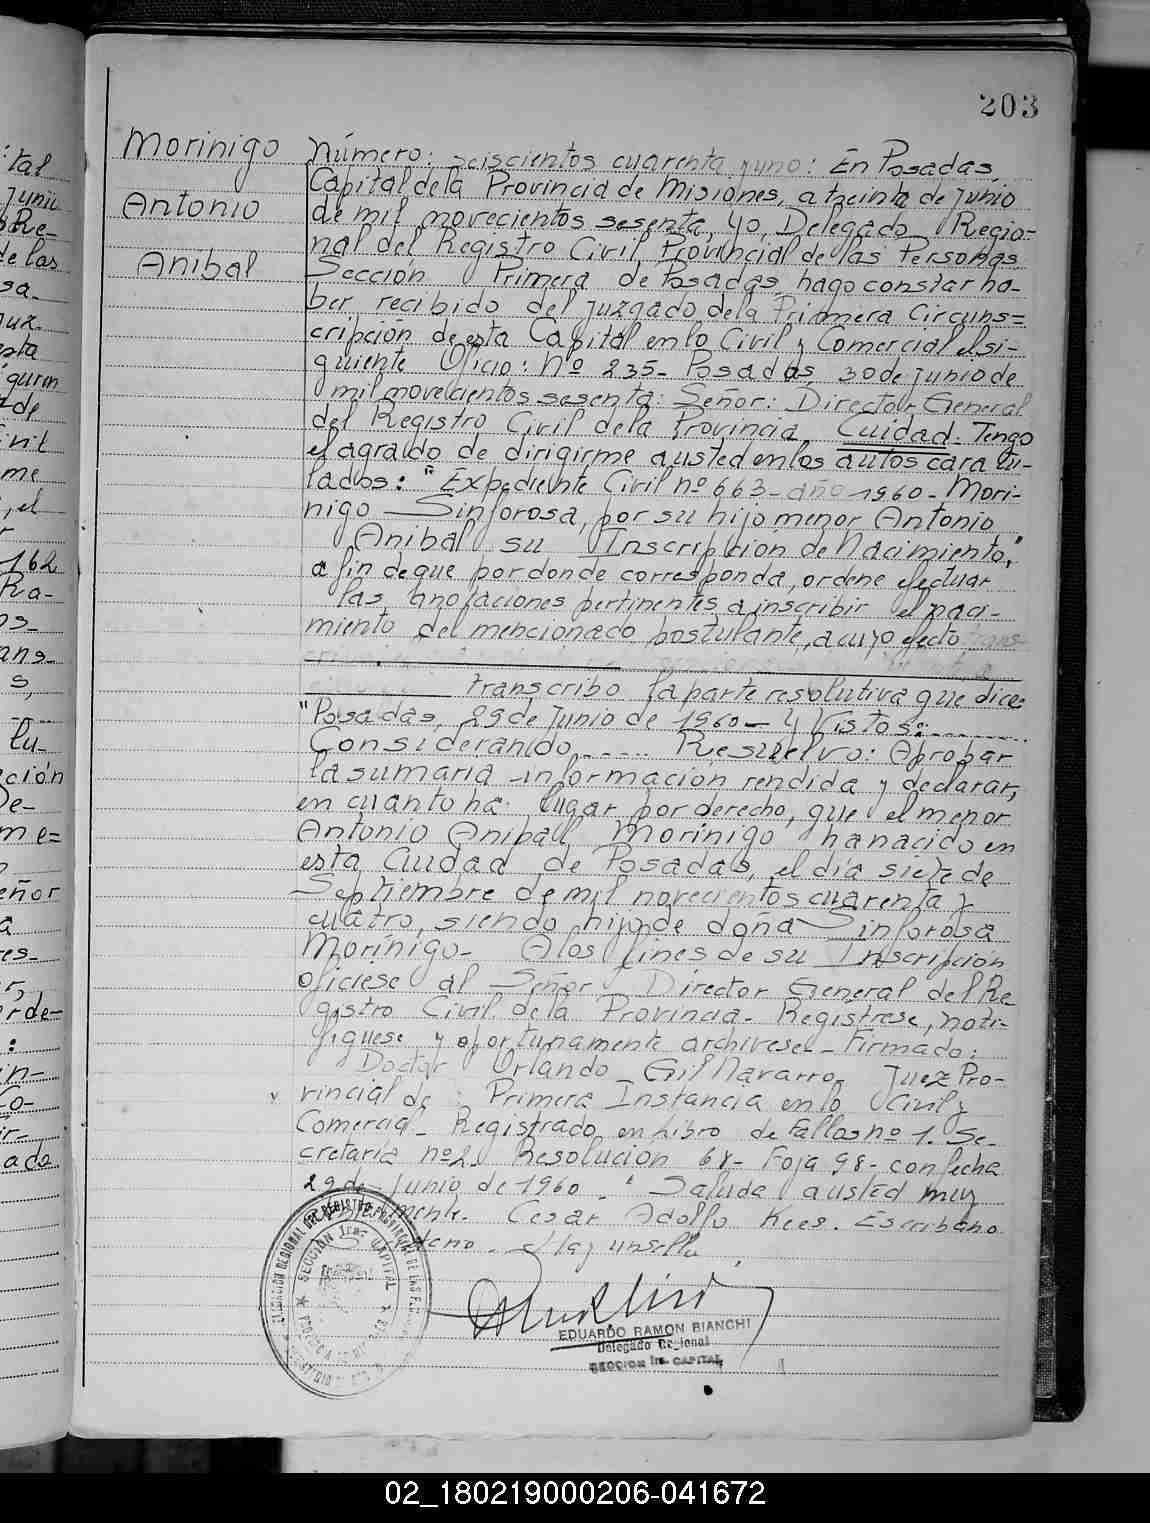 203
Morinigo
Antonio
Anibal
Número: seiscientos cuarenta y uno: En Posadas,
Capital de la Provincia de Misiones, a treinta de Junio
de mil novecientos sesenta, yo, Delegado Regio-
nal del Registro Civil Provincial de las Personas
Sección Primera de Posadas, hago constar ha-
ber recibido del Juzgado de la Primera Circuns=
cripción de esta Capital en lo Civil y Comercial el si-
guiente Oficio: Nº 235- Posadas, 30 de Junio de
mil novecientos sesenta: Señor: Director General
del Registro Civil de la Provincia Cuidad. Tengo
el agrado de dirigirme a usted en los autos cara tu-
lados: "Expediente Civil nº 663- año 1960- Mori-
nigo Sinforosa, por su hijo menor Antonio
Anibal su Inscripción de Nacimiento,"
a fin de que por donde corresponda, ordene efectuar
las anotaciones pertinentes a inscribir el naci-
miento del mencionado postulante, a cuyo efecto trans-
transcribo la parte resolutiva que dice:
"Posadas, 29 de Junio de 1960- y Vistos:........
Considerando...... Resuelvo: Aprobar
la sumaria información rendida y declarar,
en cuanto ha lugar por derecho, que el menor
Antonio Anibal Morinigo ha nacido en
esta Ciudad de Posadas, el día siete de
Septiembre de mil novecientos cuarenta y
cuatro, siendo hijo de doña Sinforosa
Morínigo- A los fines de su Inscripción
ofíciese al Señor Director General del Re
gistro Civil de la Provincia- Regístrese, noti-
fíquese y oportunamente archívese- Firmado:
Doctor Orlando Gil Navarro Juez Pro-
vincial de Primera Instancia en lo Civil y
Comercial- Registrado en Libro de Fallos nº 1. Se-
cretaría nº 2. Resolución 68- Foja 98- con fecha
29 de Junio de 1960. " Saluda a usted muy
Cesar Adolfo Kees. Escribano
Hay un sello
SECCION 1ra. CAPITAL
EDUARDO RAMON BIANCHI
Delegado Regional
SECCION 1ra CAPITAL
tal
Junio
Re-
de las
sa-
Juz-
esta
guien
de
ivil
me
, el
r
162
Ra-
os-
ans-
s,
lu-
ción
De-
me=
eñor
a
es-
r,
orde-
:
in-
Co-
ir-
ado
02_180219000206-041672